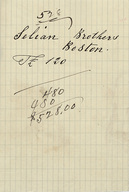 Selian Brothers
Boston.
480
480
$528.00